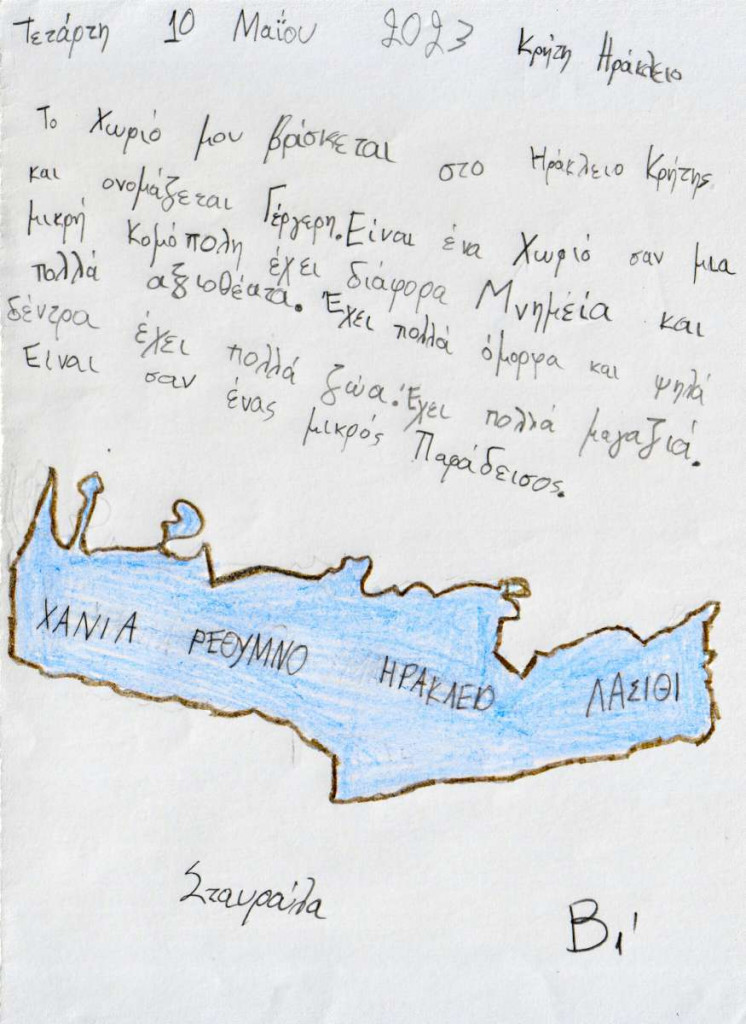 Τετάρτη 10 Μαΐου 2023 Κρήτη Ηράκλειο
Το Χωριό μου βρίσκεται στο Ηράκλειο Κρήτης
και ονομάζεται Γέργερη. Είναι ένα Χωριό σαν μια
μικρή Κομόπολη έχει διάφορα Μνημεία και
πολλά αξιοθέατα. Έχει πολλά όμορφα και ψηλά
δέντρα έχει πολλά ζώα. Έχει πολλά μαγαζιά.
Είναι σαν ένας μικρός Παράδεισος.
ΧΑΝΙΑ ΡΕΘΥΜΝΟ ΗΡΑΚΛΕΙΟ ΛΑΣΙΘΙ
Σταυρούλα
Β1'